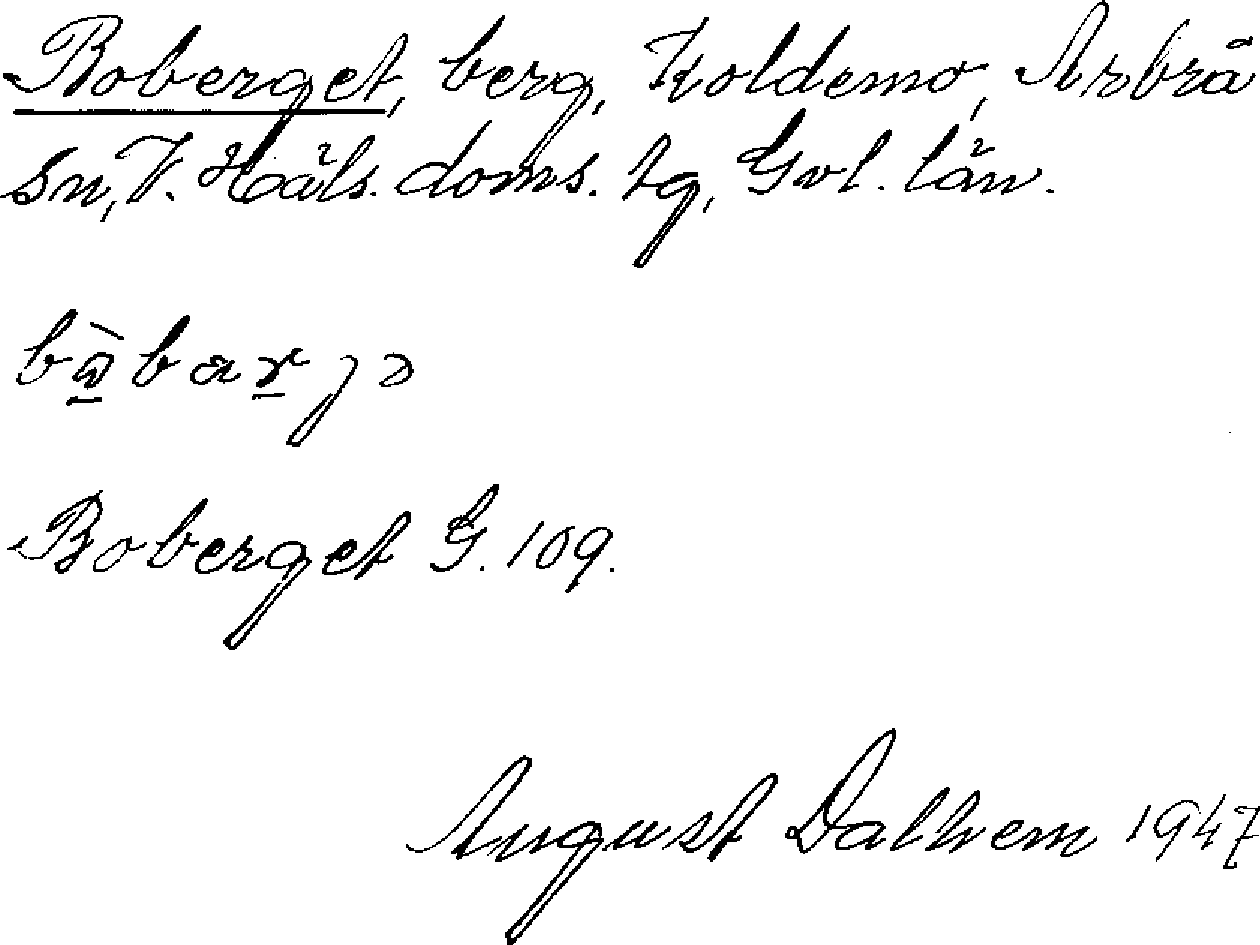 Boberget, berg, Koldemo, Arbrå
sn, V. Häls. doms. tg, Gvl. län.
Boberget G. 109.
August Dalhem 1947